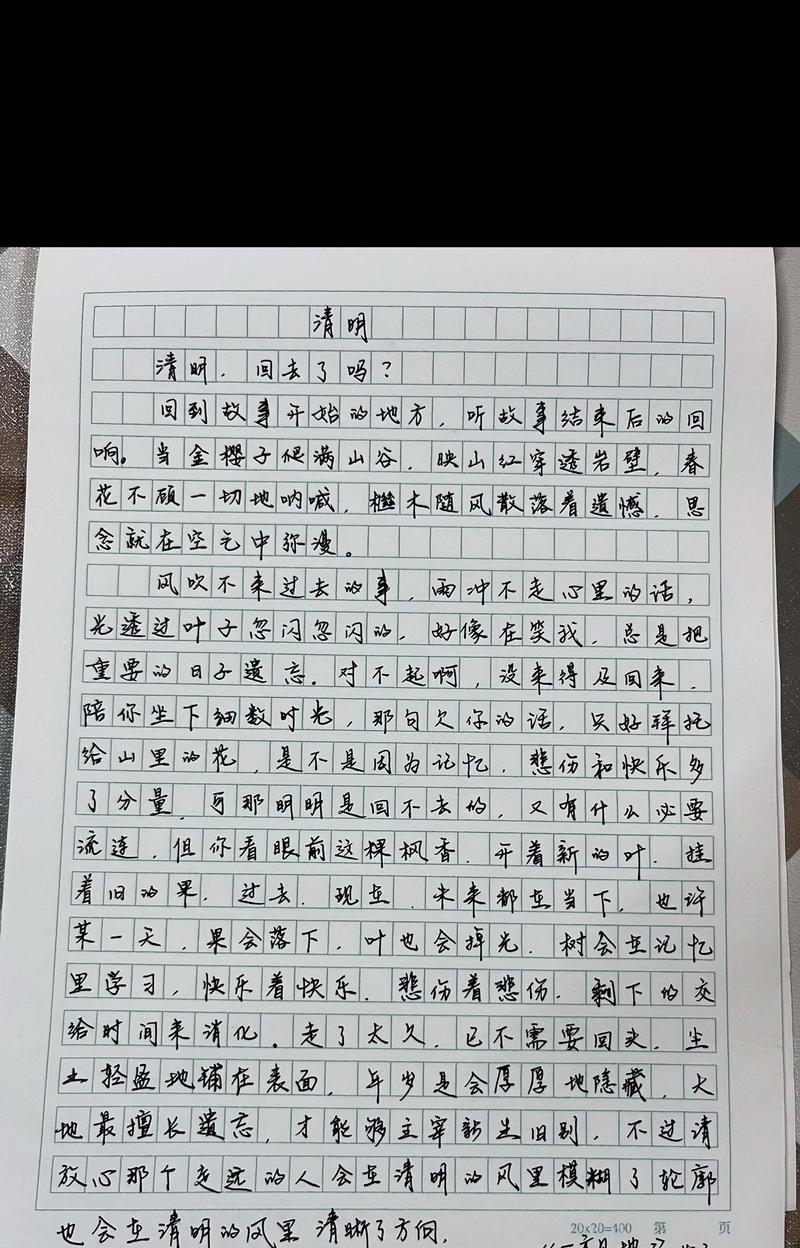 清明
清明，回去了吗？
回到故事开始的地方，听故事结束后的回
响。当金樱子爬满山谷，映山红穿透岩壁，春
花不顾一切地呐喊，檵木随风散落着遗憾，思
念就在空气中弥漫。
风吹不来过去的事，雨冲不走心里的话，
光透过叶子忽闪忽闪的，好像在笑我，总是把
重要的日子遗忘。对不起啊，没来得及回来，
陪你坐下细数时光，那句欠你的话，只好拜托
给山里的花，是不是因为记忆，悲伤和快乐多
了分量，可那明明是回不去的，又有什么必要
流连，但你看眼前这棵枫香，开着新的叶，挂
着旧的果，过去，现在，未来都在当下，也许
某一天，果会落下，叶也会掉光，树会在记忆
里学习，快乐着快乐，悲伤着悲伤，剩下的交
给时间来消化。走了太久，已不需要回头，尘
土轻盈地铺在表面，年岁是会厚厚地隐藏，大
地最擅长遗忘，才能够主宰新生旧别，不过请
放心那个走远的人会在清明的风里模糊了轮廓
也会在清明的风里 清晰了方向，
20x20=400 第 页